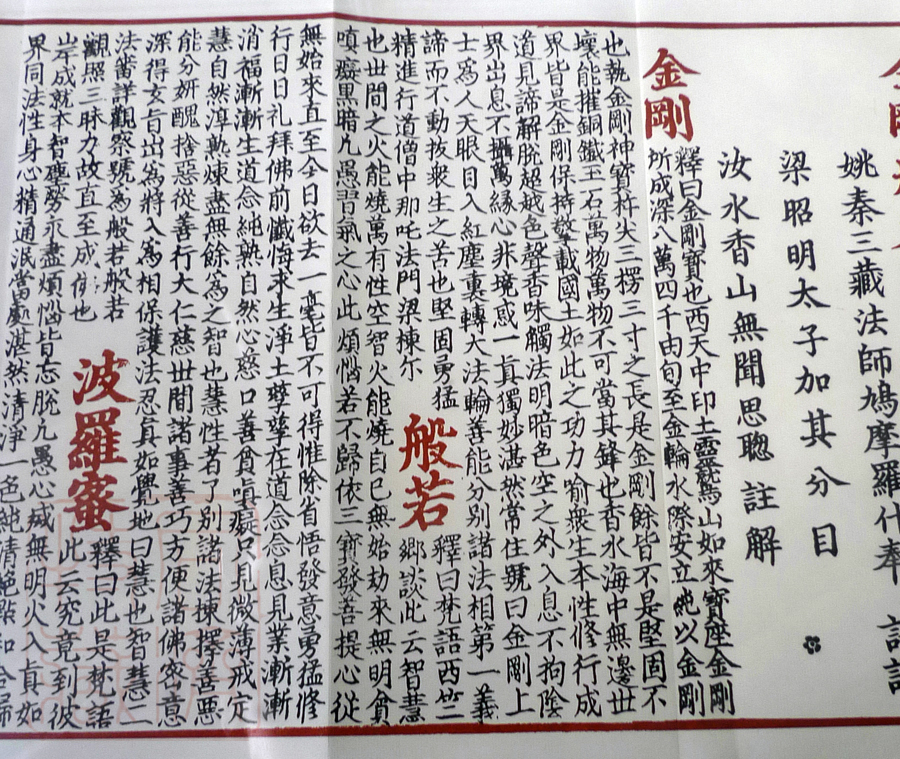 姚秦三藏法師鳩摩羅什奉
梁昭明太子加其分目
汝水香山無聞思聰註解
金剛
釋曰金剛寶也西天中印土靈鷲山如來寶座金剛
所成深八萬四千由旬至金輪水際安立純以金剛
也執金剛神寶杵尖三楞三寸之長是金剛餘皆不是堅固不
壞能摧銅鐵玉石萬物萬物不可當其鋒也香水海中無邊世
界皆是金剛保持擎載國土如此之功力喻衆生本性修行成
道見諦解脫超越色聲香味觸法明暗色空之外入息不拘陰
界出息不攝萬緣心非境惑一真獨妙湛然常住號曰金剛上
士為人天眼目入紅塵裏轉大法輪善能分別諸法相第一義
諦而不動拔衆生之苦也堅固勇猛
精進行道僧中那吒法門梁棟尓
般若
釋曰梵語西竺
鄉談此云智慧
也世間之火能燒萬有性空智火能燒自已無始劫來無明貪
嗔癡黑暗凡愚習氣之心此煩惱若不歸依三寶發善提心從
無始來直至今日欲去一毫皆不可得惟除省悟發意勇猛修
行日日礼拜佛前懺悔求生淨土孽孽在道念念息見業漸漸
消福漸漸生道念純熟自然心慈口善貪嗔癡只見微薄戒定
慧自然淳熟煉盡無餘為之智也慧性者了別諸法揀擇善惡
能分妍醜捨惡從善行大仁慈世間諸事善巧方便諸佛密意
深得玄旨出為將入為相保護法忍真如覺地曰慧也智慧二
法審詳觀察號為般若般若
觀照三昧力故直至成佛也
波羅蜜
釋曰此是梵語
此云究竟到彼
岸成就本智塵勞永盡煩惱皆忘脫凡愚心滅無明火入真如
界同法性身心精通泯當處湛然清淨一色純清絕點和合歸